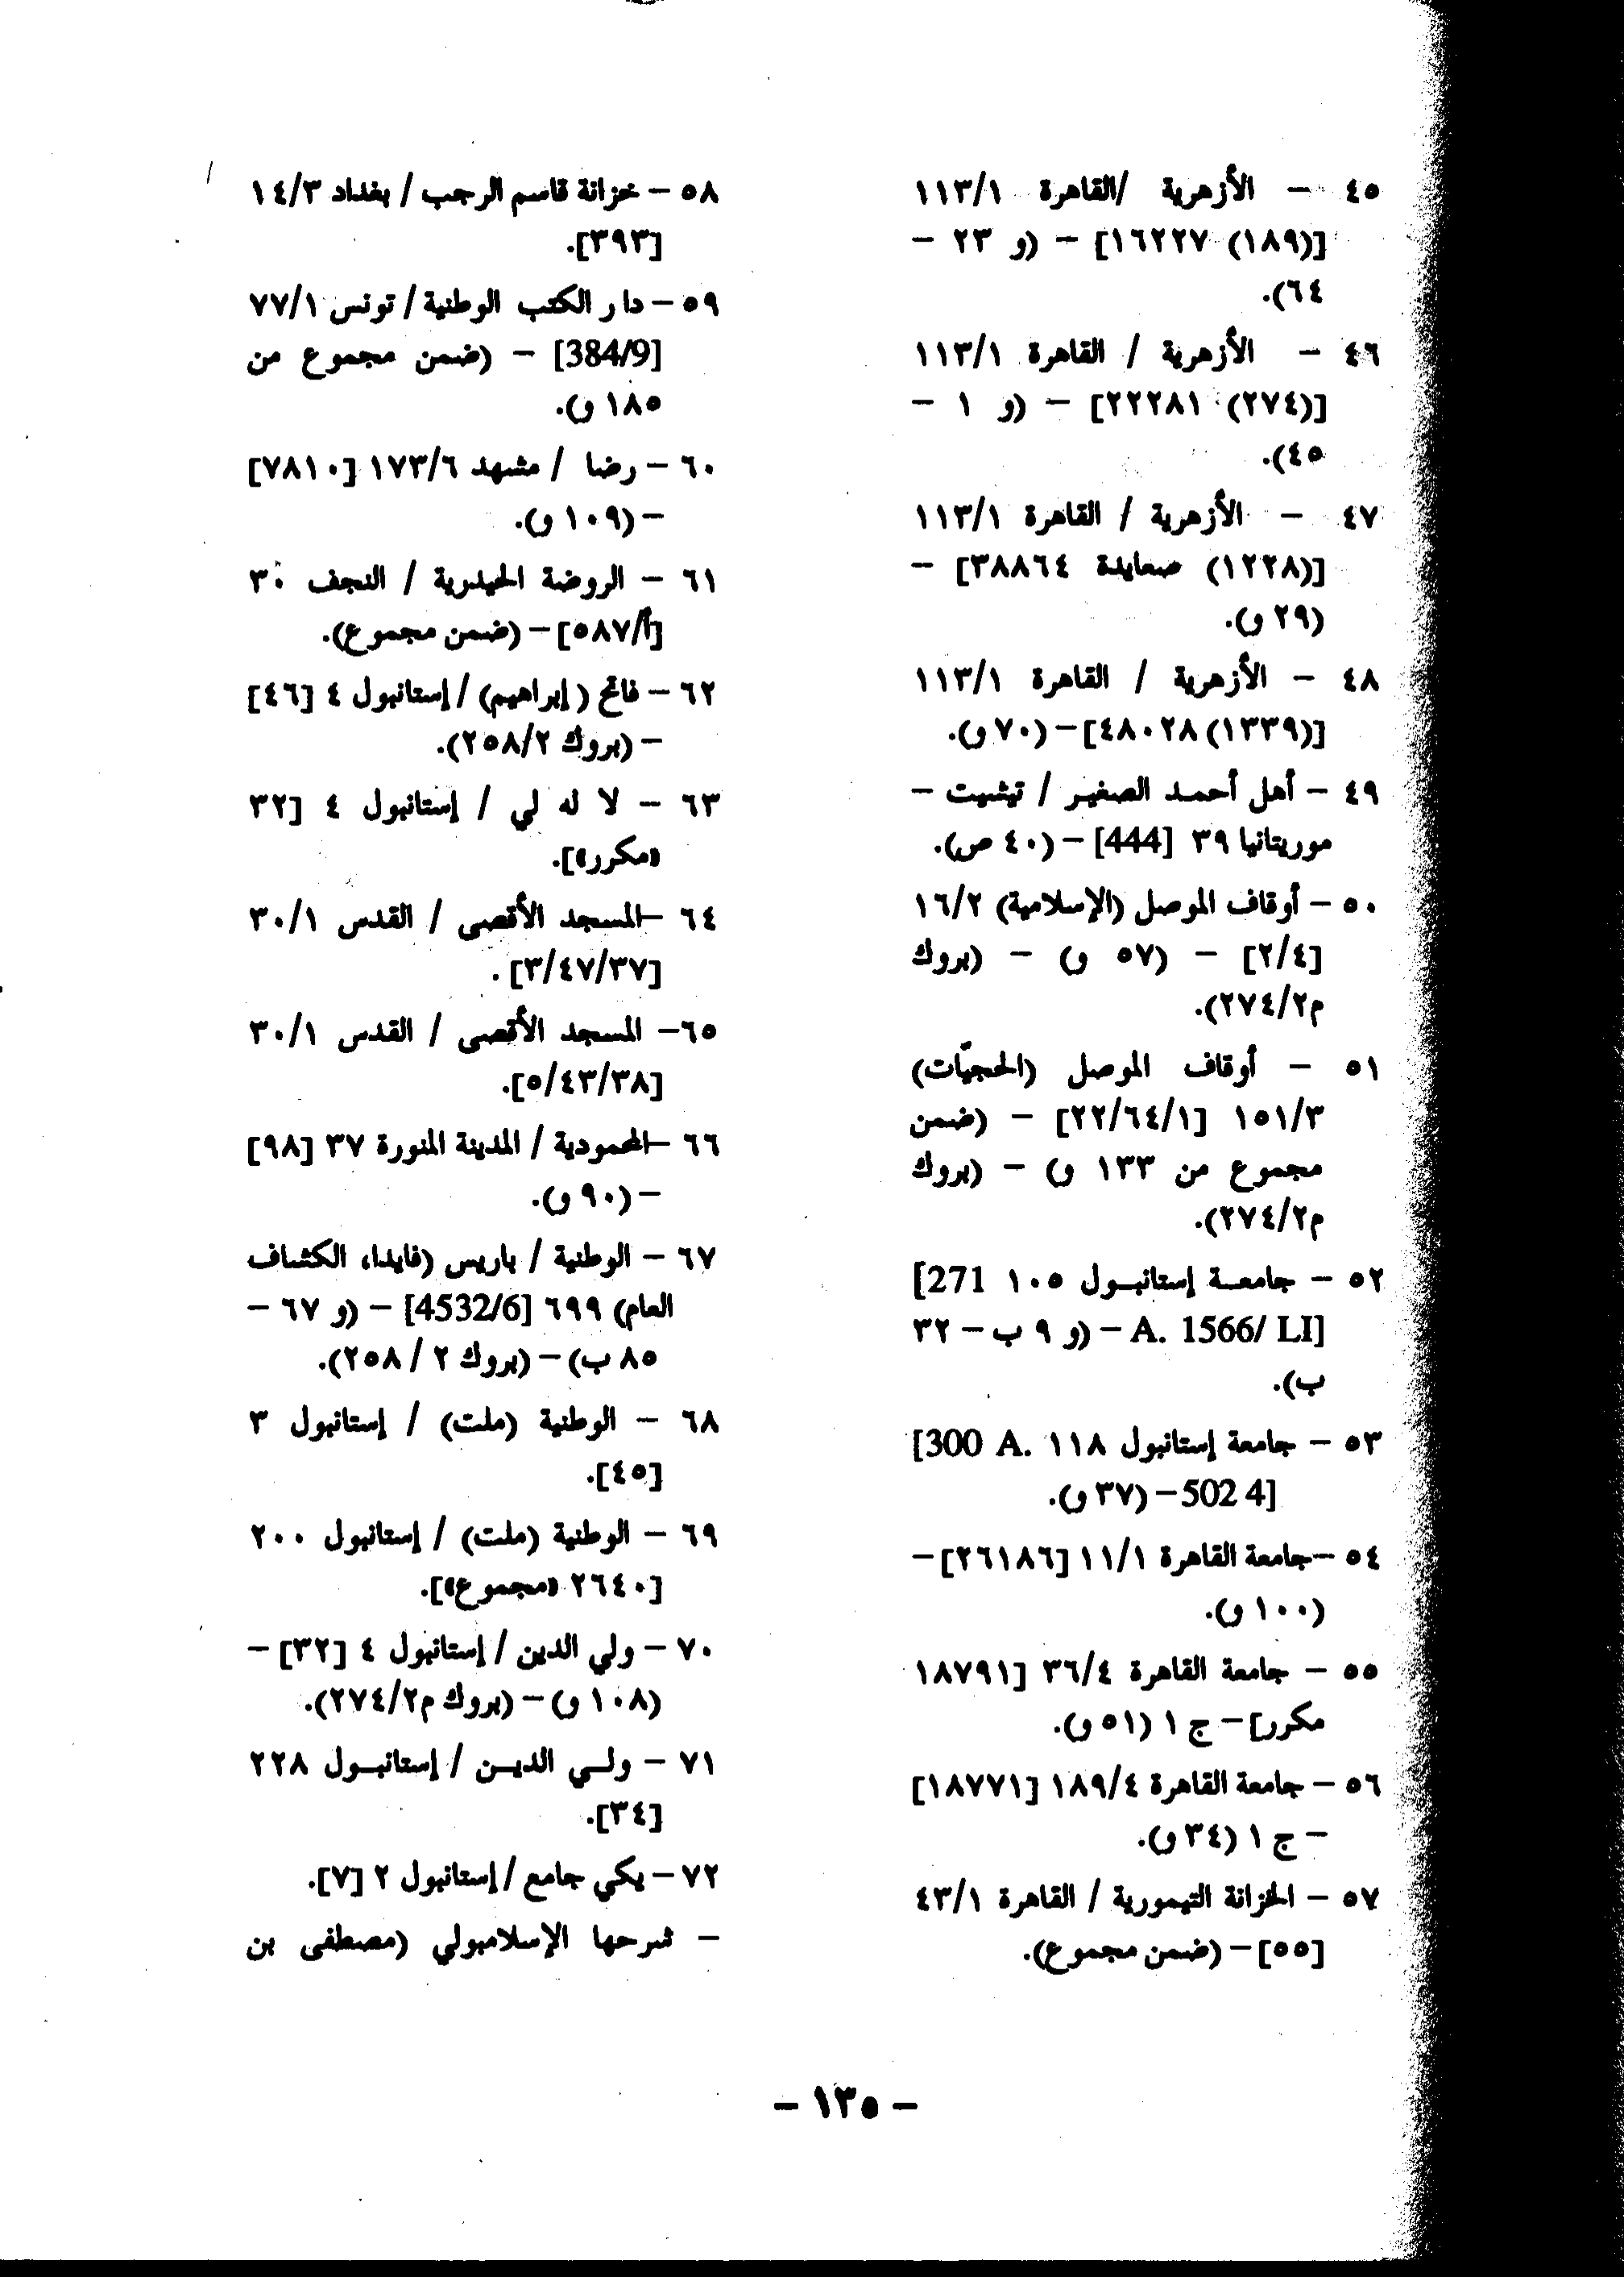 ٤٥ – الأزهرية /القاهرة ١١٣/١
[(١٨٩) ١٦٢٢٧] – (و ٢٣ –
٦٤).
٤٦ – الأزهرية / القاهرة ١١٣/١
[(٢٧٤) ٢٢٢٨١] – (و ١ –
٤٥).
٤٧ – الأزهرية / القاهرة ١١٣/١
[(١٢٢٨) صعايدة ٣٨٨٦٤] –
(٢٩ و).
٤٨ – الأزهرية / القاهرة ١١٣/١
[(١٣٣٩) ٤٨٠٢٨] – (٧٠ و).
٤٩ – أهل أحمد الصغير / تيشيت –
موريتانيا ٣٩ [444] – (٤٠ ص).
٥٠ – أوقاف الموصل (الإسلامية) ١٦/٢
[٢/٤] – (٥٧ و) – (بروك
م٢٧٤/٢).
٥١ – أوقاف الموصل (الحجيّات)
١٥١/٣ [٢٢/٦٤/١] – (ضمن
مجموع من ١٣٣ و) – (بروك
م٢٧٤/٢).
٥٢ – جامعة إستانبول ١٠٥ [271
A. 1566/ LI] – (و ٩ ب – ٣٢
ب).
٥٣ – جامعة إستانبول ١١٨ [300 A.
502 4] – (٣٧ و).
٥٤ – جامعة القاهرة ١١/١ [٢٦١٨٦] –
(١٠٠ و).
٥٥ – جامعة القاهرة ٣٦/٤ [١٨٧٩١
مكرر] – ج ١ (٥١ و).
٥٦ – جامعة القاهرة ١٨٩/٤ [١٨٧٧١]
– ج ١ (٣٤ و).
٥٧ – الخزانة التيمورية / القاهرة ٤٣/١
[٥٥] – (ضمن مجموع).
٥٨ – خزانة قاسم الرجب / بغداد ١٤/٣
[٣٩٣].
٥٩ – دار الكتب الوطنية / تونس ٧٧/١
[384/9] – (ضمن مجموع من
١٨٥ و).
٦٠ – رضا / مشهد ١٧٣/٦ [٧٨١٠]
– (١٠٩ و).
٦١ – الروضة الحيدرية / النجف ٣٠
[أ/٥٨٧] – (ضمن مجموع).
٦٢ – فاتح (إبراهيم) / إستانبول ٤ [٤٦]
– (بروك ٢٥٨/٢).
٦٣ – لا له لي / إستانبول ٤ [٣٢
«مكرر»].
٦٤ – المسجد الأقصى / القدس ٣٠/١
[٣/٤٧/٣٧] .
٦٥ – المسجد الأقصى / القدس ٣٠/١
[٥/٤٣/٣٨].
٦٦ – المحمودية / المدينة المنورة ٣٧ [٩٨]
– (٩٠ و).
٦٧ – الوطنية / باريس (فايدا، الكشاف
العام) ٦٩٩ [4532/6] – (و ٦٧ –
٨٥ ب) – (بروك ٢ / ٢٥٨).
٦٨ – الوطنية (ملت) / إستانبول ٣
[٤٥].
٦٩ – الوطنية (ملت) / إستانبول ٢٠٠
[٢٦٤٠ «مجموع»].
٧٠ – ولي الدين / إستانبول ٤ [٣٢] –
(١٠٨ و) – (بروك م٢٧٤/٢).
٧١ – ولي الدين / إستانبول ٢٢٨
[٣٤].
٧٢ – يكي جامع / إستانبول ٢ [٧].
– شرحها الإسلامبولي (مصطفى بن
– ١٣٥ –